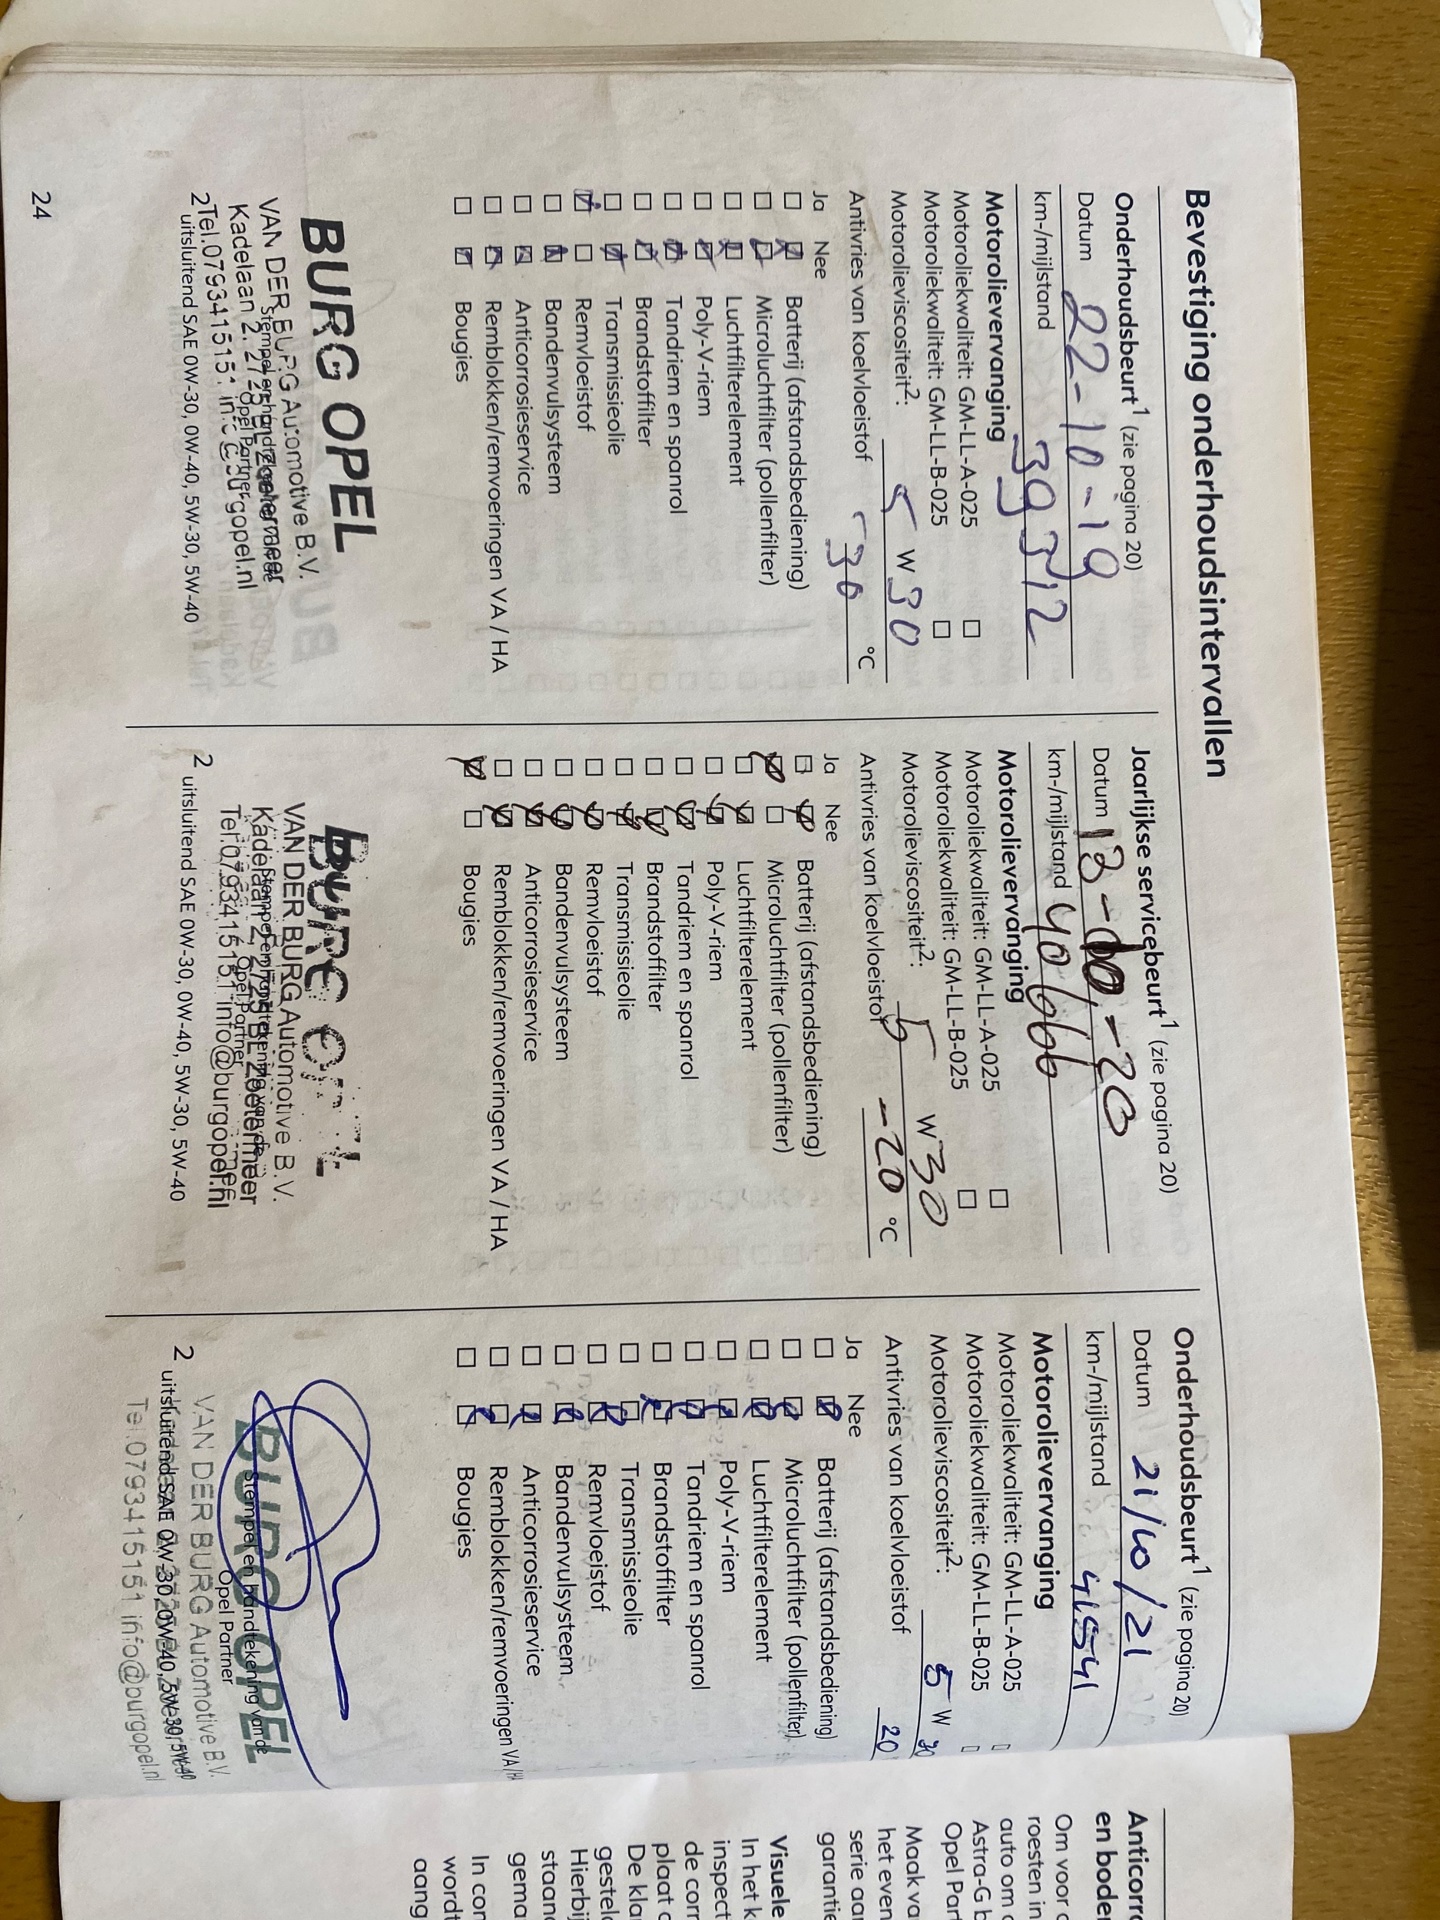 Bevestiging onderhoudsintervallen
Onderhoudsbeurt¹ (zie pagina 20)
Datum 22-10-19
km-/mijlstand 39312
Motorolievervanging
Motoroliekwaliteit: GM-LL-A-025 □
Motoroliekwaliteit: GM-LL-B-025 □
Motorolieviscositeit²: 5 W 30
Antivries van koelvloeistof -30 °C
Ja Nee
Batterij (afstandsbediening)
Microluchtfilter (pollenfilter)
Luchtfilterelement
Poly-V-riem
Tandriem en spanrol
Brandstoffilter
Transmissieolie
Remvloeistof
Bandenvulsysteem
Anticorrosieservice
Remblokken/remvoeringen VA / HA
Bougies
BURG OPEL
VAN DER BURG Automotive B.V.
Kadelaan 2, 2725 BL Zoetermeer
Tel.0793415151 info@burgopel.nl
Opel Partner
2 uitsluitend SAE 0W-30, 0W-40, 5W-30, 5W-40
24
Jaarlijkse servicebeurt¹ (zie pagina 20)
Datum 13-10-20
km-/mijlstand 40666
Motorolievervanging
Motoroliekwaliteit: GM-LL-A-025 □
Motoroliekwaliteit: GM-LL-B-025 □
Motorolieviscositeit²: 5 W 30
Antivries van koelvloeistof -20 °C
Ja Nee
Batterij (afstandsbediening)
Microluchtfilter (pollenfilter)
Luchtfilterelement
Poly-V-riem
Tandriem en spanrol
Brandstoffilter
Transmissieolie
Remvloeistof
Bandenvulsysteem
Anticorrosieservice
Remblokken/remvoeringen VA / HA
Bougies
BURG OPEL
VAN DER BURG Automotive B.V.
Kadelaan 2, 2725 BL Zoetermeer
Tel.0793415151 info@burgopel.nl
Opel Partner
2 uitsluitend SAE 0W-30, 0W-40, 5W-30, 5W-40
Onderhoudsbeurt¹ (zie pagina 20)
Datum 21/10/21
km-/mijlstand 41541
Motorolievervanging
Motoroliekwaliteit: GM-LL-A-025 □
Motoroliekwaliteit: GM-LL-B-025 □
Motorolieviscositeit²: 5 W 30
Antivries van koelvloeistof 20
Ja Nee
Batterij (afstandsbediening)
Microluchtfilter (pollenfilter)
Luchtfilterelement
Poly-V-riem
Tandriem en spanrol
Brandstoffilter
Transmissieolie
Remvloeistof
Bandenvulsysteem
Anticorrosieservice
Remblokken/remvoeringen VA / HA
Bougies
BURG OPEL
Stempel en handtekening van de
Opel Partner
VAN DER BURG Automotive B.V.
2 uitsluitend SAE 0W-30, 0W-40, 5W-30, 5W-40
Tel.0793415151 info@burgopel.nl
Anticorro
en boden
Om voor c
roesten in
auto om d
Astra-G b
Opel Part
Maak va
het even
serie aan
garantie
Visuele
In het k
inspect
de corr
plaat c
De kla
gestel
Hierbij
staan
gema
In con
wordt
aang